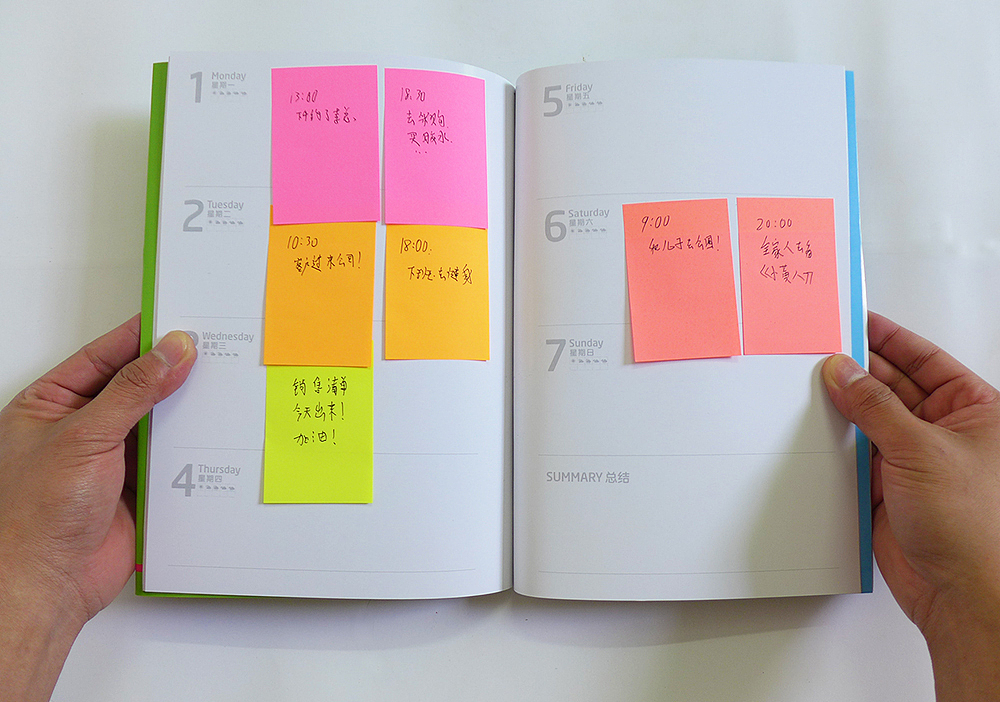 1 Monday
星期一
13:00
18:30
去采购
买胶水
...
2 Tuesday
星期二
10:30
客户过来公司!
18:00
去健身
Wednesday
星期三
销售清单
今天出来!
加油!
4 Thursday
星期四
5 Friday
星期五
6 Saturday
星期六
9:00
儿子去公园!
20:00
全家人去看
7 Sunday
星期日
SUMMARY 总结